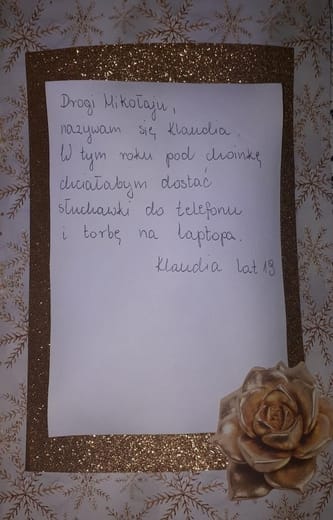 Drogi Mikołaju,
nazywam się Klaudia.
W tym roku pod choinkę
chciałabym dostać
słuchawki do telefonu
i torbę na laptopa.
Klaudia lat 19